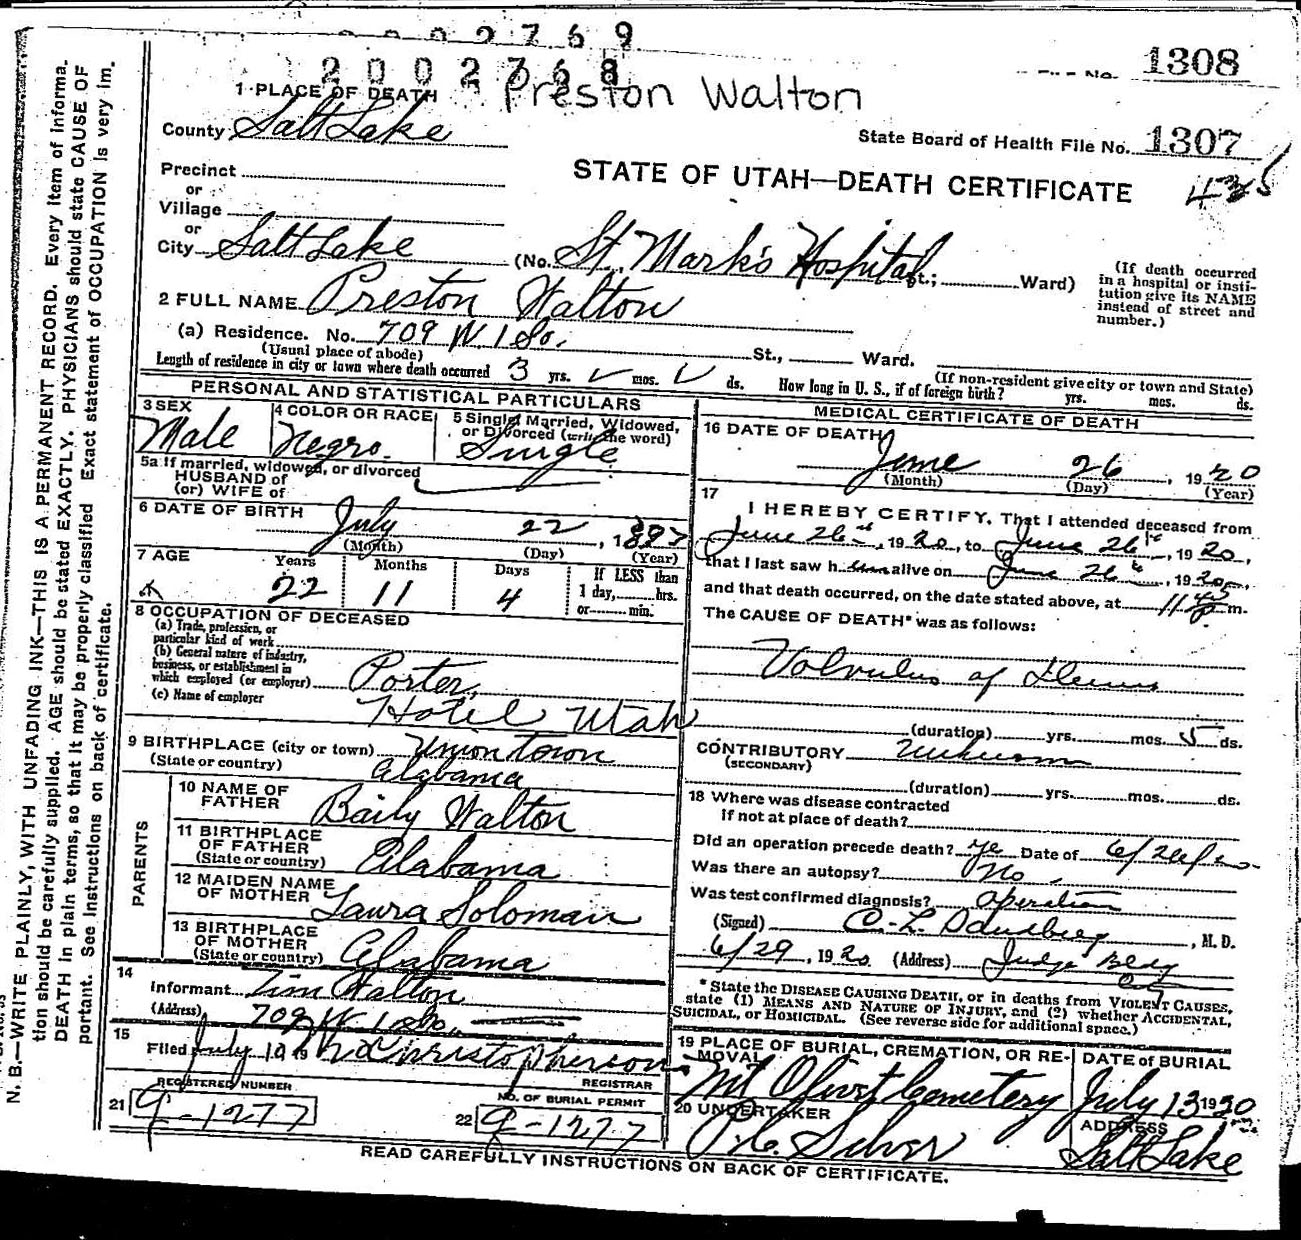 2002769
2002768
1308
Preston Walton
1 PLACE OF DEATH
County Salt Lake
State Board of Health File No. 1307
STATE OF UTAH—DEATH CERTIFICATE
435
Precinct
or
Village
or
City Salt Lake (No. St. Mark's Hospital St.; Ward)
(If death occurred in a hospital or insti-
tution give its NAME
instead of street and
number.)
2 FULL NAME Preston Walton
(a) Residence. No. 709 W. 1 So. St., Ward.
(Usual place of abode) (If non-resident give city or town and State)
Length of residence in city or town where death occurred 3 yrs. mos. ds. How long in U. S., if of foreign birth? yrs. mos. ds.
PERSONAL AND STATISTICAL PARTICULARS
3 SEX Male
4 COLOR OR RACE Negro.
5 Single, Married, Widowed,
or Divorced (write the word)
Single
5a If married, widowed, or divorced
HUSBAND of
(or) WIFE of
6 DATE OF BIRTH July 22, 1897
(Month) (Day) (Year)
7 AGE Years Months Days If LESS than
22 11 4 1 day, hrs.
or min.
8 OCCUPATION OF DECEASED
(a) Trade, profession, or
particular kind of work
(b) General nature of industry,
business, or establishment in
which employed (or employer) Porter,
(c) Name of employer Hotel Utah
9 BIRTHPLACE (city or town) Uniontown
(State or country) Alabama
PARENTS
10 NAME OF
FATHER Baily Walton
11 BIRTHPLACE
OF FATHER
(State or country) Alabama
12 MAIDEN NAME
OF MOTHER Laura Soloman
13 BIRTHPLACE
OF MOTHER
(State or country) Alabama
14
Informant Tim Walton
(Address) 709 W. 1 So.
15
Filed July 10 19 Christopherson
REGISTRAR
REGISTERED NUMBER
21 9-1277
NO. OF BURIAL PERMIT
22 9-1277
MEDICAL CERTIFICATE OF DEATH
16 DATE OF DEATH
June 26, 1920
(Month) (Day) (Year)
17
I HEREBY CERTIFY, That I attended deceased from
June 26th, 1920, to June 26th, 1920,
that I last saw h im alive on June 26th, 1920,
and that death occurred, on the date stated above, at 11 45 p m.
The CAUSE OF DEATH* was as follows:
Volvulus of Ileum
(duration) yrs. mos. 5 ds.
CONTRIBUTORY Unknown
(SECONDARY)
(duration) yrs. mos. ds.
18 Where was disease contracted
if not at place of death?
Did an operation precede death? Yes Date of 6/26/20
Was there an autopsy? No.
Was test confirmed diagnosis? Operation
(Signed) C. L. Sandberg, M. D.
6/29, 1920 (Address) Judge Bldg
City
* State the DISEASE CAUSING DEATH, or in deaths from VIOLENT CAUSES,
state (1) MEANS AND NATURE OF INJURY, and (2) whether ACCIDENTAL,
SUICIDAL, or HOMICIDAL. (See reverse side for additional space.)
19 PLACE OF BURIAL, CREMATION, OR RE-
MOVAL
Mt Olivet Cemetery
DATE of BURIAL
July 13 1920
20 UNDERTAKER
ADDRESS
Salt Lake
READ CAREFULLY INSTRUCTIONS ON BACK OF CERTIFICATE.
N. B.—WRITE PLAINLY, WITH UNFADING INK—THIS IS A PERMANENT RECORD. Every item of informa-
tion should be carefully supplied. AGE should be stated EXACTLY. PHYSICIANS should state CAUSE OF
DEATH in plain terms, so that it may be properly classified. Exact statement of OCCUPATION is very im-
portant. See instructions on back of certificate.